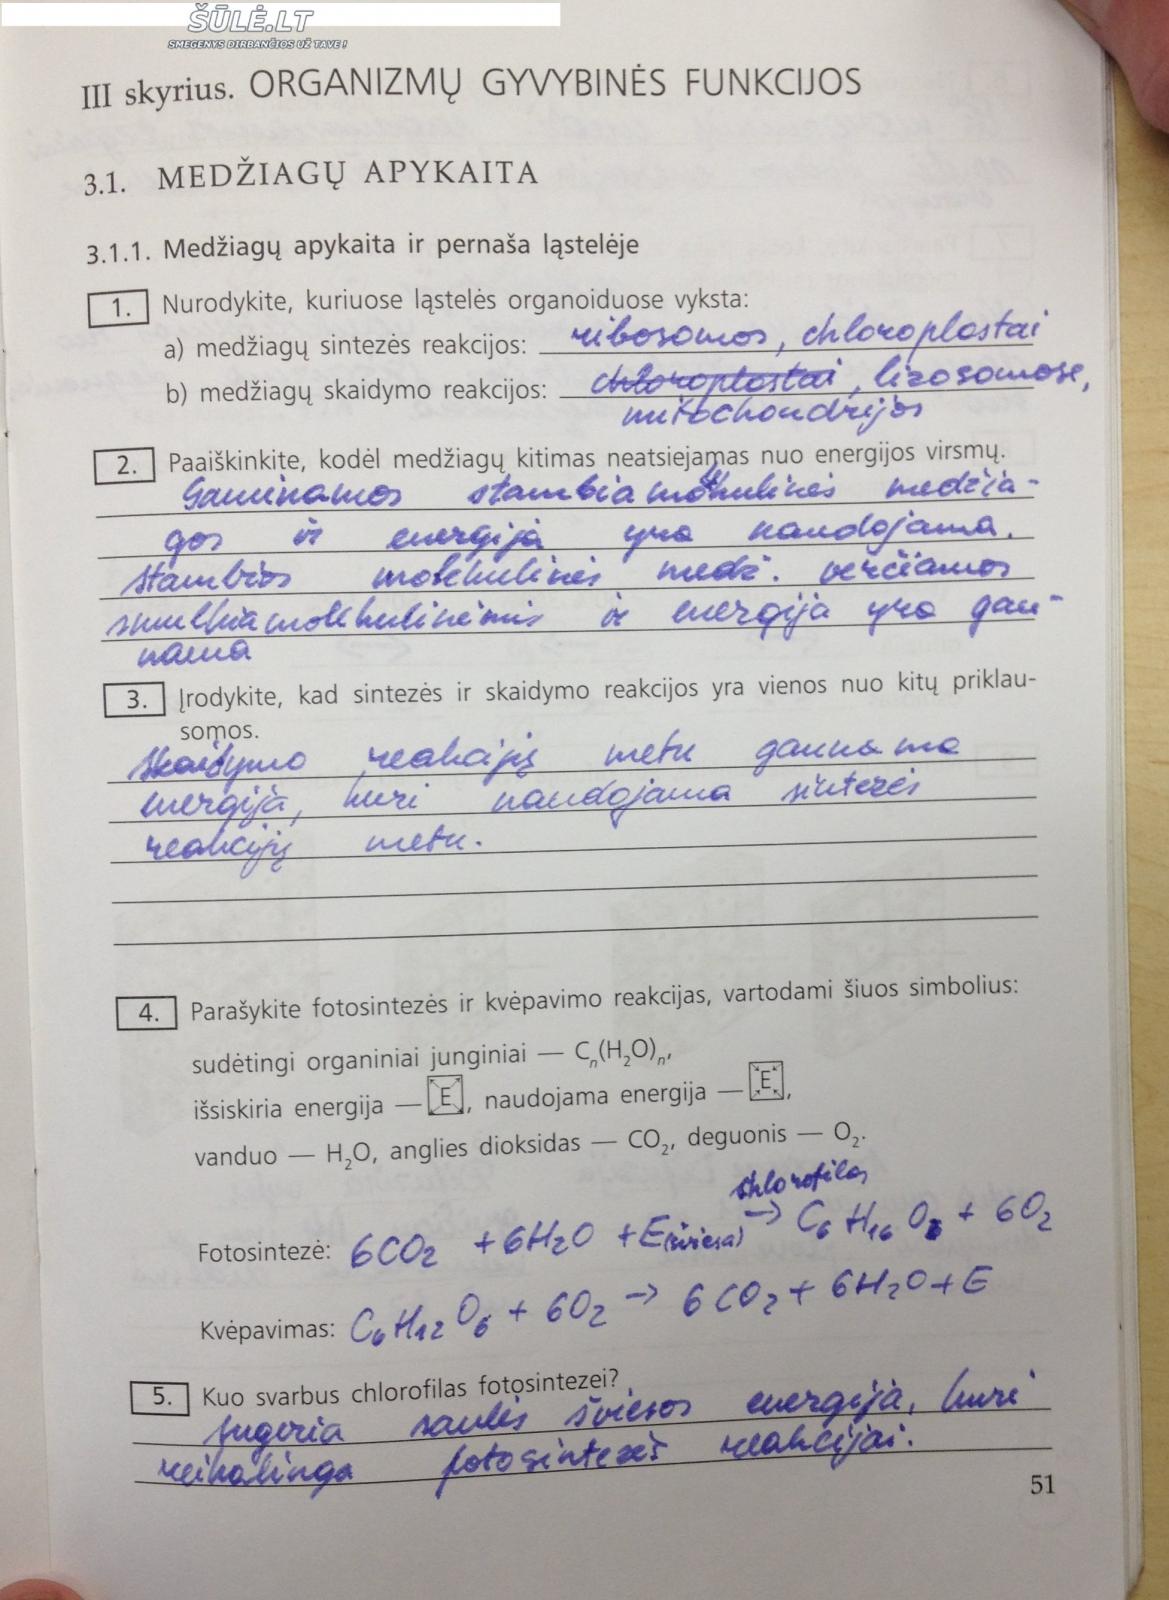 ŠŪLĖ.LT
SMEGENYS DIRBANČIOS UŽ TAVE!
III skyrius. ORGANIZMŲ GYVYBINĖS FUNKCIJOS
3.1. MEDŽIAGŲ APYKAITA
3.1.1. Medžiagų apykaita ir pernaša ląstelėje
1. Nurodykite, kuriuose ląstelės organoiduose vyksta:
a) medžiagų sintezės reakcijos: ribosomos, chloroplastai
b) medžiagų skaidymo reakcijos: chloroplastai, lizosomose,
mitochondrijos
2. Paaiškinkite, kodėl medžiagų kitimas neatsiejamas nuo energijos virsmų.
Gaminamos stambiamolekulinės medžia-
gos ir energija yra naudojama.
Stambios molekulinės medž. verčiamos
smulkiamolekulinėmis ir energija yra gau-
nama
3. Įrodykite, kad sintezės ir skaidymo reakcijos yra vienos nuo kitų priklau-
somos.
Skaidymo reakcijų metu gaunama
energija, kuri naudojama sintezės
reakcijų metu.
4. Parašykite fotosintezės ir kvėpavimo reakcijas, vartodami šiuos simbolius:
sudėtingi organiniai junginiai — Cₙ(H₂O)ₙ,
išsiskiria energija — E, naudojama energija — E,
vanduo — H₂O, anglies dioksidas — CO₂, deguonis — O₂.
chlorofilas
Fotosintezė: 6CO₂ + 6H₂O + E(šviesa) → C₆H₁₆O₆ + 6O₂
Kvėpavimas: C₆H₁₂O₆ + 6O₂ → 6CO₂ + 6H₂O + E
5. Kuo svarbus chlorofilas fotosintezei?
Sugeria saulės šviesos energija, kuri
reikalinga fotosintezės reakcijai.
51